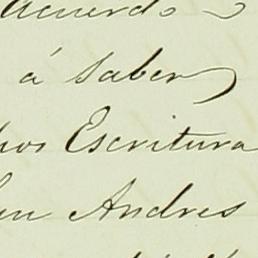 Acuerdo
á saber
hos Escritura
Andres